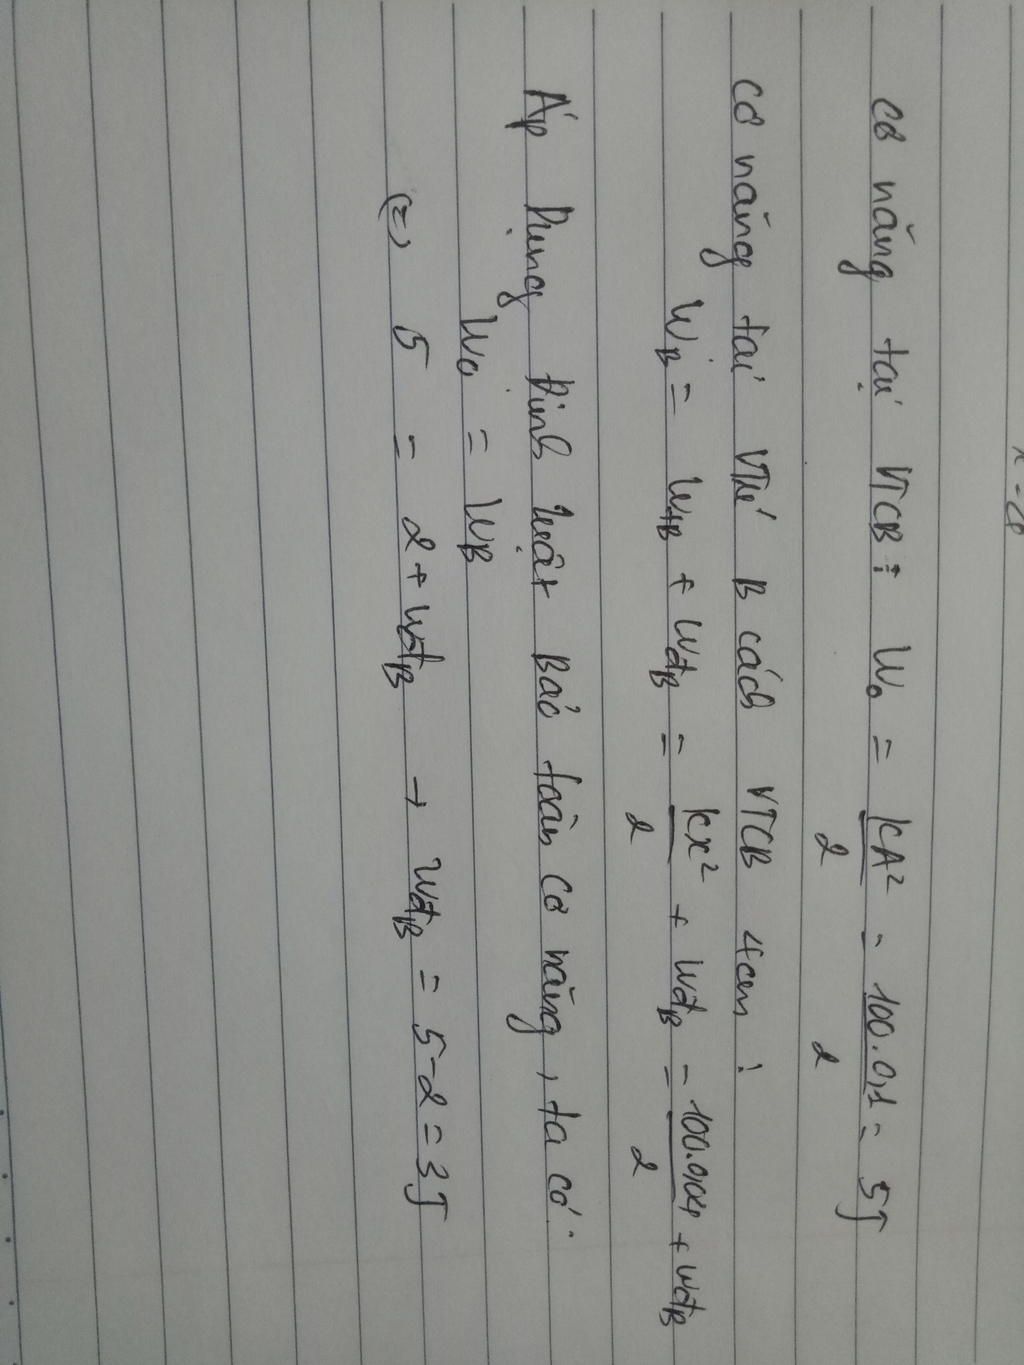 Cơ năng tại VTCB : W₀ = kA²/2 = 100.0,1/2 = 5J
Cơ năng tại Vtrí B cách VTCB 4cm :
W_B = W_tB + Wđ_B = kx²/2 + Wđ_B = 100.0,04/2 + Wđ_B
Áp Dụng Định luật Bảo toàn cơ năng, ta có:
W₀ = W_B
(=) 5 = 2 + Wđ_B → Wđ_B = 5-2 = 3J